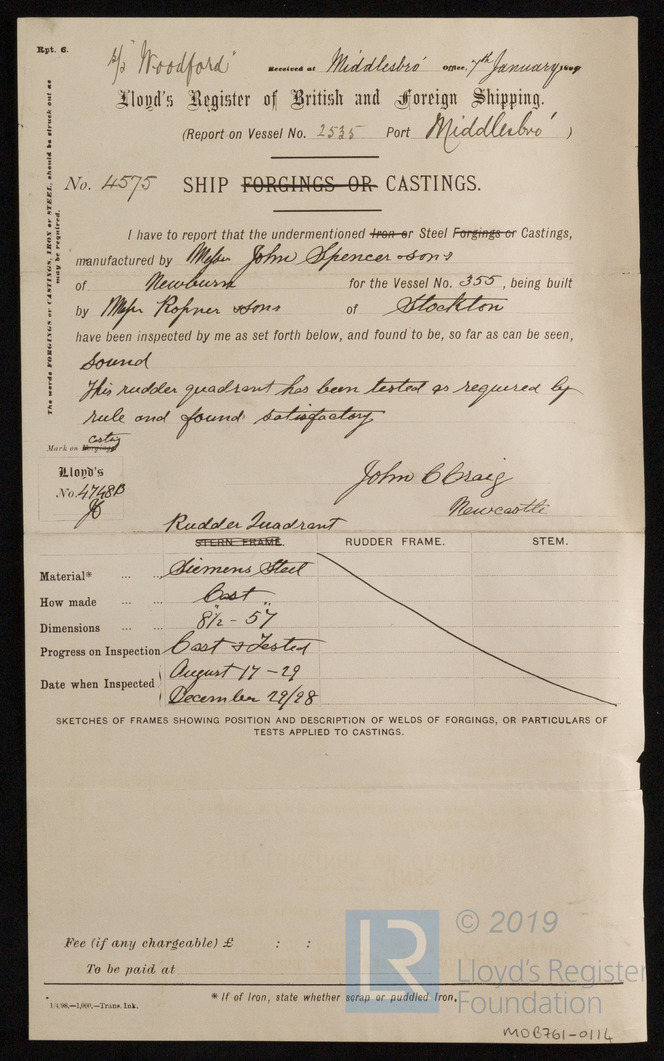 Rpt. 6.
s/s "Woodford"
Received at Middlesbro' Office, 7th January 1899
Lloyd's Register of British and Foreign Shipping.
(Report on Vessel No. 2535 Port Middlesbro')
No. 4575 SHIP FORGINGS OR CASTINGS.
The words FORGINGS or CASTINGS, IRON or STEEL, should be struck out as
may be required.
I have to report that the undermentioned Iron or Steel Forgings or Castings,
manufactured by Messrs John Spencer & Sons
of Newburn for the Vessel No. 355, being built
by Messrs Ropner & Sons of Stockton
have been inspected by me as set forth below, and found to be, so far as can be seen,
Sound
This rudder quadrant has been tested as required by
rule and found satisfactory
casting
Mark on Forgings
Lloyd's
No. 4748B
John C Craig
Newcastle
Rudder Quadrant
STERN FRAME. RUDDER FRAME. STEM.
Material* ... ... Siemens Steel
How made ... ... Cast
Dimensions ... ... 8½" - 57"
Progress on Inspection Cast & Tested
Date when Inspected August 17 - 29
December 29/98
SKETCHES OF FRAMES SHOWING POSITION AND DESCRIPTION OF WELDS OF FORGINGS, OR PARTICULARS OF
TESTS APPLIED TO CASTINGS.
Fee (if any chargeable) £ : :
To be paid at
* If of Iron, state whether scrap or puddled Iron.
1/4/98.—1,000.—Trans. Ink.
LR
© 2019
Lloyd's Register
Foundation
MDB761-0114